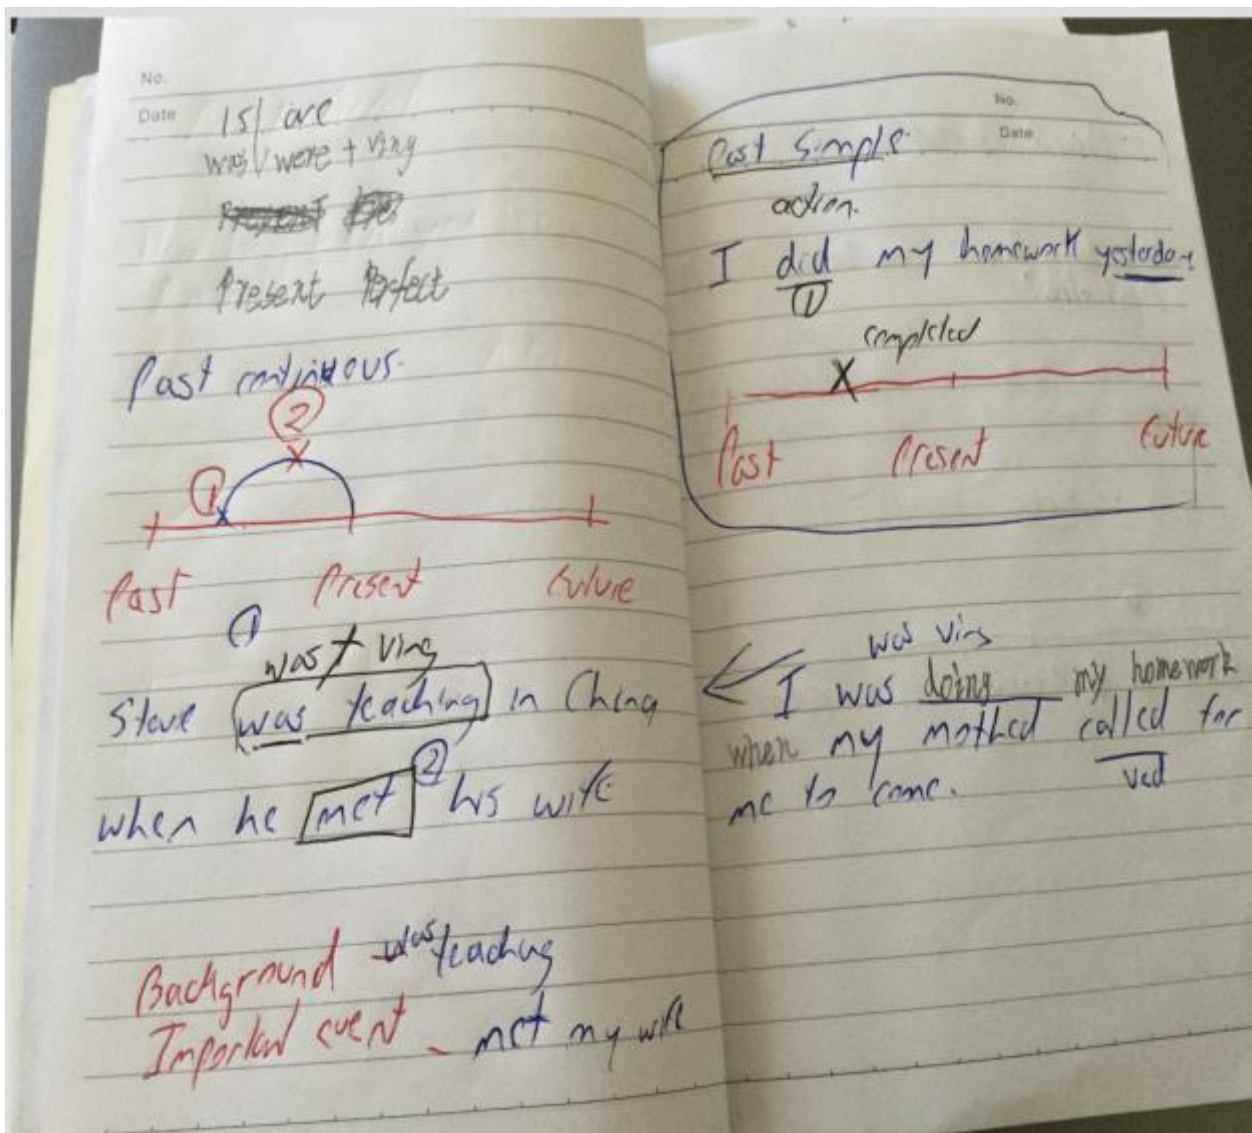 No.
Date
Is/are
was/were + ving
Present Perfect
Past continuous.
2
1
Past Present Future
1
was + ving
Steve was teaching in China
2
when he met his wife
Background - was teaching
Important event - met my wife
No.
Date
Past Simple
action.
I did my homework yesterday
1
completed
X
Past Present Future
was ving
I was doing my homework
when my mother called for
me to come. ved